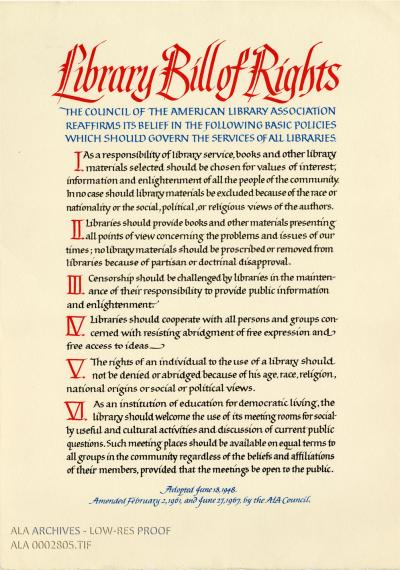 Library Bill of Rights
THE COUNCIL OF THE AMERICAN LIBRARY ASSOCIATION
REAFFIRMS ITS BELIEF IN THE FOLLOWING BASIC POLICIES
WHICH SHOULD GOVERN THE SERVICES OF ALL LIBRARIES.
I. As a responsibility of library service, books and other library
materials selected should be chosen for values of interest,
information and enlightenment of all the people of the community.
In no case should library materials be excluded because of the race or
nationality or the social, political, or religious views of the authors.
II. Libraries should provide books and other materials presenting
all points of view concerning the problems and issues of our
times; no library materials should be proscribed or removed from
libraries because of partisan or doctrinal disapproval.
III. Censorship should be challenged by libraries in the mainten-
ance of their responsibility to provide public information
and enlightenment.
IV. Libraries should cooperate with all persons and groups con-
cerned with resisting abridgment of free expression and
free access to ideas.
V. The rights of an individual to the use of a library should
not be denied or abridged because of his age, race, religion,
national origins or social or political views.
VI. As an institution of education for democratic living, the
library should welcome the use of its meeting rooms for social-
ly useful and cultural activities and discussion of current public
questions. Such meeting places should be available on equal terms to
all groups in the community regardless of the beliefs and affiliations
of their members, provided that the meetings be open to the public.
Adopted June 18, 1948.
Amended February 2, 1961, and June 27, 1967, by the ALA Council.
ALA ARCHIVES - LOW-RES PROOF
ALA 0002805.TIF